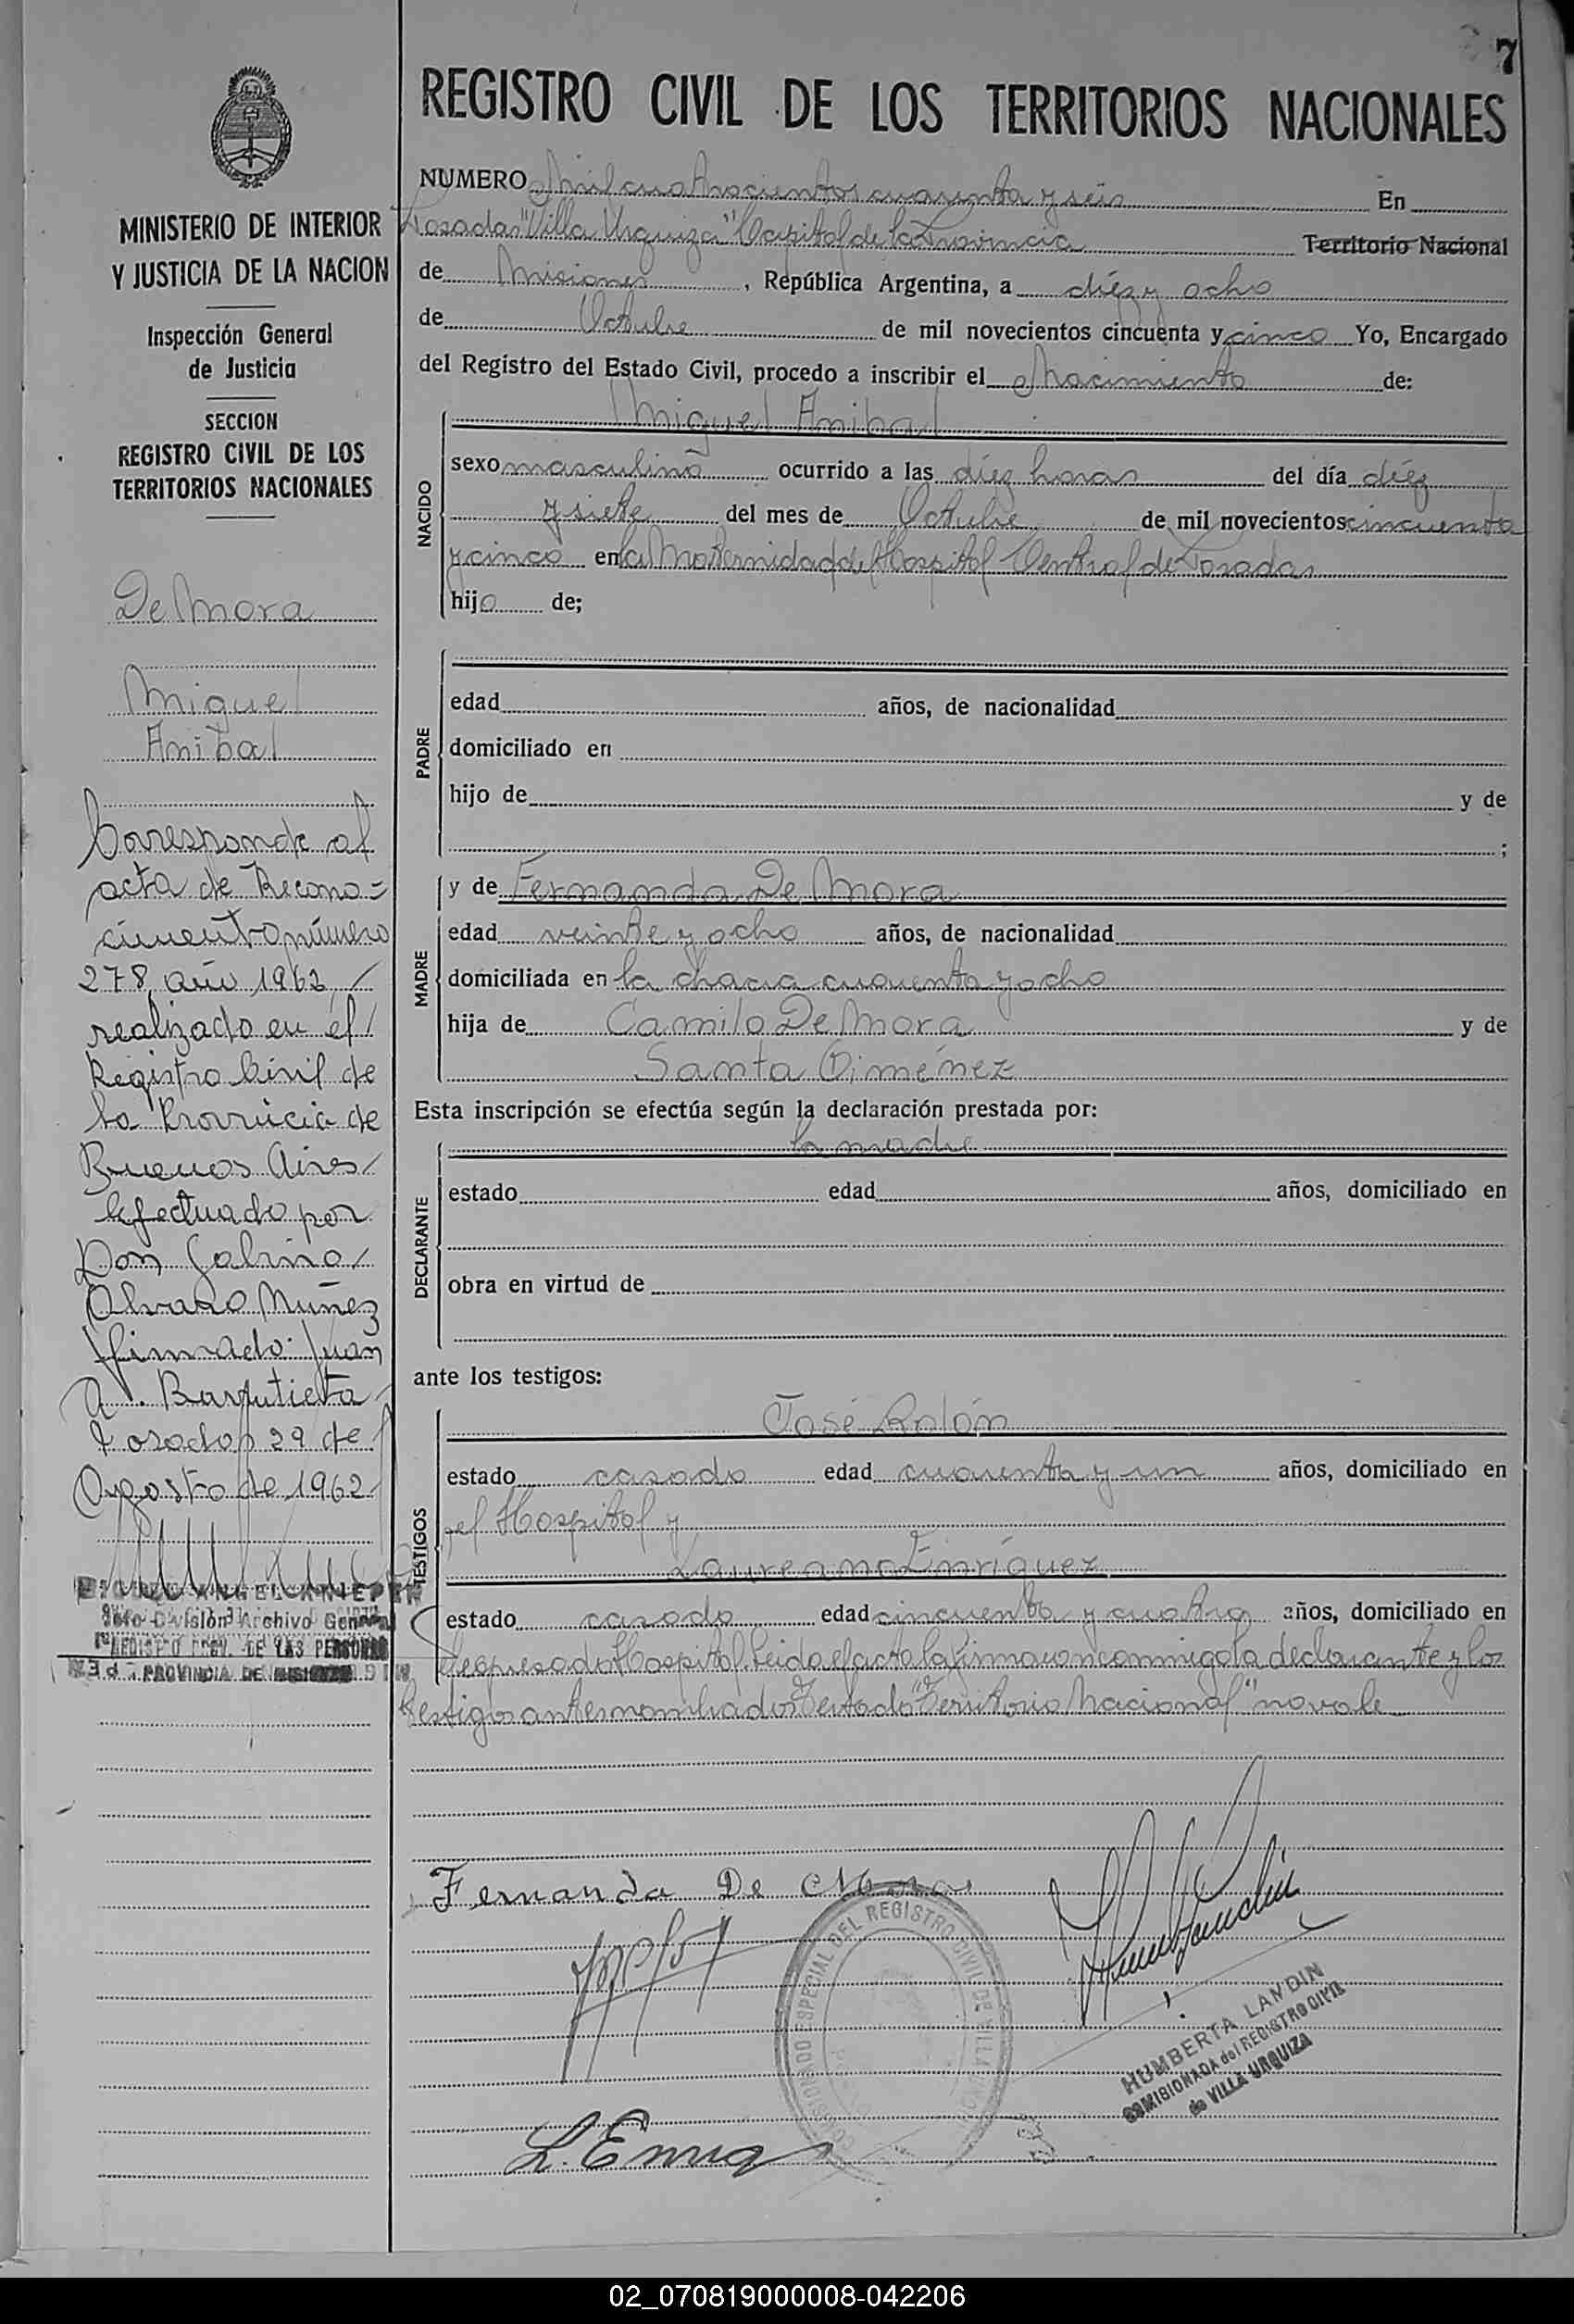 7
REGISTRO CIVIL DE LOS TERRITORIOS NACIONALES
MINISTERIO DE INTERIOR
Y JUSTICIA DE LA NACION
Inspección General
de Justicia
SECCION
REGISTRO CIVIL DE LOS
TERRITORIOS NACIONALES
De Mora
Miguel
Anibal
Corresponde al
acta de Recono=
cimiento número
278 año 1962 /
realizado en el /
Registro Civil de
la Provincia de
Buenos Aires /
efectuado por
Don Gabino /
Alvaro Nuñez
firmado Juan
A. Barrutieta
Posadas 29 de
Agosto de 1962
División Archivo General
REGISTRO PROV. DE LAS PERSONAS
PROVINCIA DE MISIONES
NUMERO Mil cuatrocientos cuarenta y seis En
Posadas "Villa Urquiza" Capital de la Provincia Territorio Nacional
de Misiones, República Argentina, a diez y ocho
de Octubre de mil novecientos cincuenta y cinco Yo, Encargado
del Registro del Estado Civil, procedo a inscribir el Nacimiento de:
NACIDO
Miguel Anibal
sexo masculino ocurrido a las diez horas del día diez
y siete del mes de Octubre de mil novecientos cincuenta
y cinco en la Maternidad del Hospital Central de Posadas
hijo de;
PADRE
edad años, de nacionalidad
domiciliado en
hijo de y de
;
MADRE
y de Fernanda De Mora
edad veinte y ocho años, de nacionalidad
domiciliada en la chacra cuarenta y ocho
hija de Camilo De Mora y de
Santa Giménez
Esta inscripción se efectúa según la declaración prestada por:
DECLARANTE
la madre
estado edad años, domiciliado en
obra en virtud de
ante los testigos:
TESTIGOS
José Rolón
estado casado edad cuarenta y un años, domiciliado en
el Hospital y
Laureano Enríquez
estado casado edad cincuenta y cuatro años, domiciliado en
el expresado Hospital. Leida el acta la firmaron conmigo la declarante y los
testigos antes nombrados Testado "Territorio Nacional" no vale
Fernanda De Mora
COMISIONADO ESPECIAL DEL REGISTRO CIVIL DE VILLA URQUIZA
HUMBERTA LANDIN
COMISIONADA del REGISTRO CIVIL
de VILLA URQUIZA
L. Enriq
02_070819000008-042206